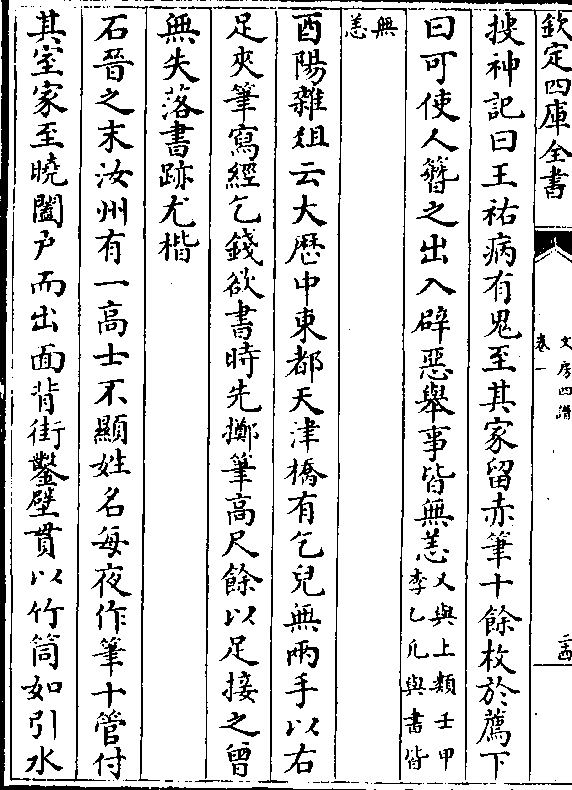 欽定四庫全書
文房四譜
卷一
二十四
搜神記曰王祐病有鬼至其家留赤筆十餘枚於薦下
曰可使人簪之出入辟惡舉事皆無恙又與上類壬甲
李乙凡與書皆
無
恙
酉陽雜俎云大厯中東都天津橋有乞兒無兩手以右
足夾筆寫經乞錢欲書時先擲筆高尺餘以足接之曾
無失落書跡尤楷
石晉之末汝州有一高士不顯姓名每夜作筆十管付
其室家至曉闔户而出面背街鑿壁貫以竹筒如引水